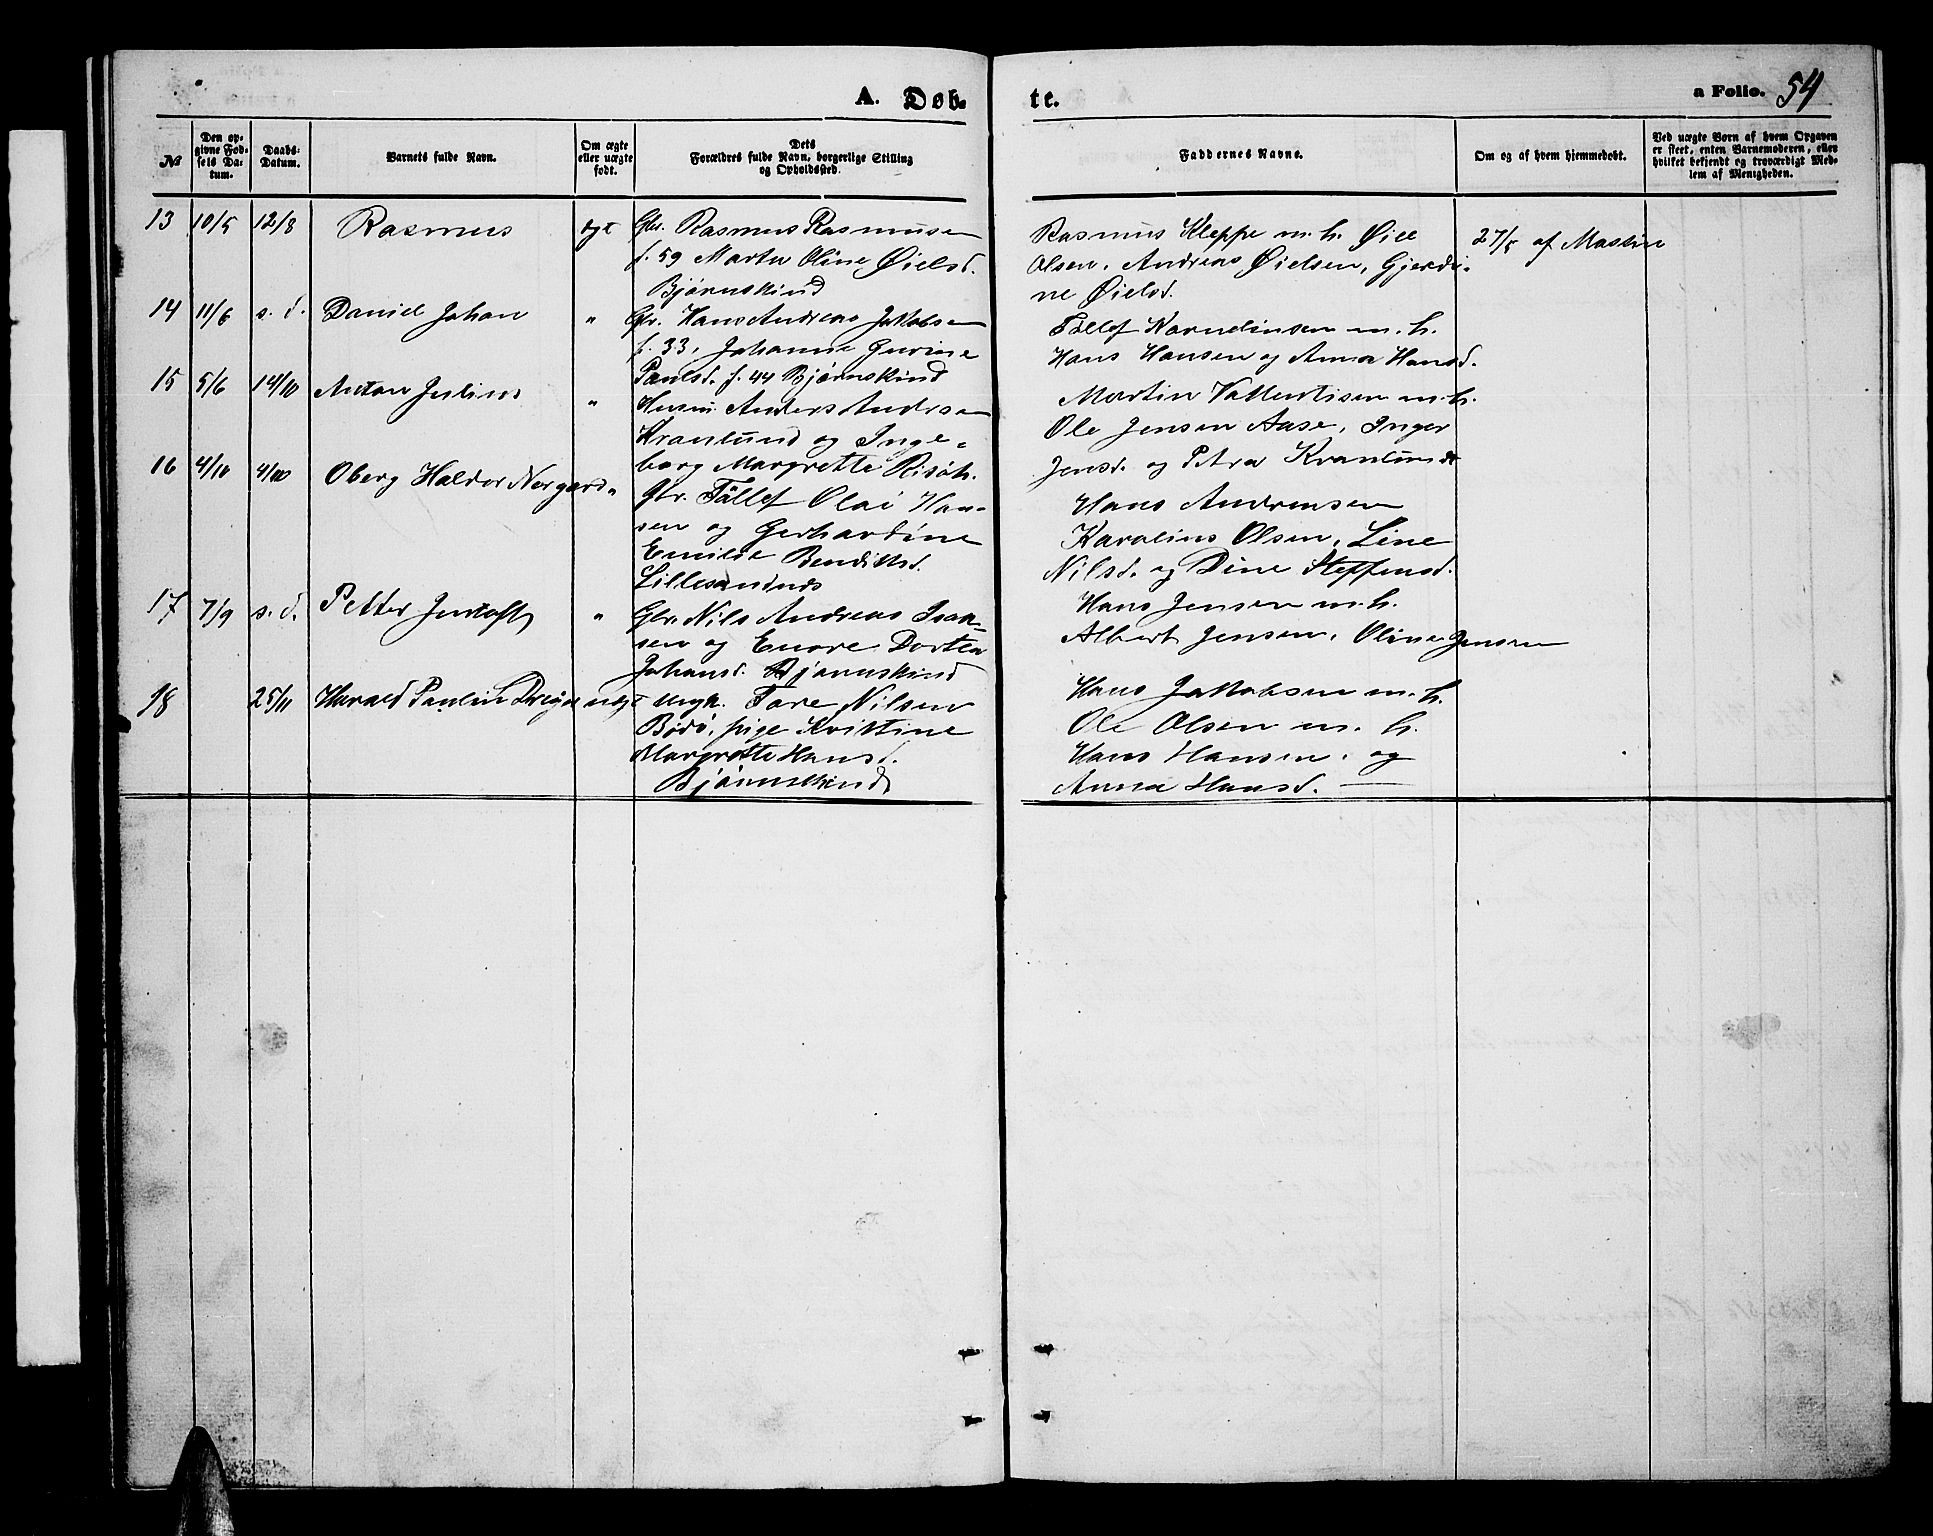 A. Døb-
te.
a Folio. 54
№
Den op-
givne Fød-
sels Da-
tum.
Daabs-
Datum.
Barnets fulde Navn.
Om ægte
eller uægte
født.
Dets
Forældres fulde Navn, borgerlige Stilling
og Opholdssted.
Faddernes Navne.
Om og af hvem hjemmedøbt.
Ved uægte Børn af hvem Opgaven
er skeet, enten Barnemoderen, eller
hvilket bekjendt og troværdigt Med-
lem af Menigheden.
13 10/5 12/8 Rasmus ægt Gbr. Rasmus Rasmusen
f. 59 Marta Oline Øielsd.
Bjørnskind
Rasmus Kleppe m. h. Øiel
Olsen, Andreas Øielsen, Gjerdi-
ne Øielsd.
27/5 af Mosteren
14 11/6 s. d. Daniel Johan " Gbr. Hans Andreas Jakobsen
f. 33, Johanne Gurine
Paulsd. f. 44 Bjørnskind
Tollef Karneliusen m. h.
Hans Hansen og Anna Hansd.
15 5/6 14/10 Anton Julius " Husm. Anders Andrsen
Kranlund og Inge-
borg Margrette Risøh.
Martin Vallentisen m. h.
Ole Jensen Aase, Inger
Jensd. og Petra Kranlund
16 4/10 4/10 Oberg Haldor Norgard " Gbr. Töllef Olai Han-
sen og Gerhardine
Emilie Bendiktsd.
Lillesandnes
Hans Andrensen
Karolius Olsen, Line
Nilsd. og Dine Steffensd.
17 7/9 s. d. Petter Jentoft " Gbr. Nils Andreas Isak-
sen og Enore Dortea
Johansd. Bjørnskind
Hans Jensen m. h.
Albert Jensen, Oline Jensen
18 25/11 Harald Paulin Dreyer uægt Ungk. Tore Nilsen
Bodø, pige Kristine
Margrette Hansd.
Bjørnskind
Hans Jakobsen m. h.
Ole Olsen m. h.
Hans Hansen, og
Anna Hansd. —